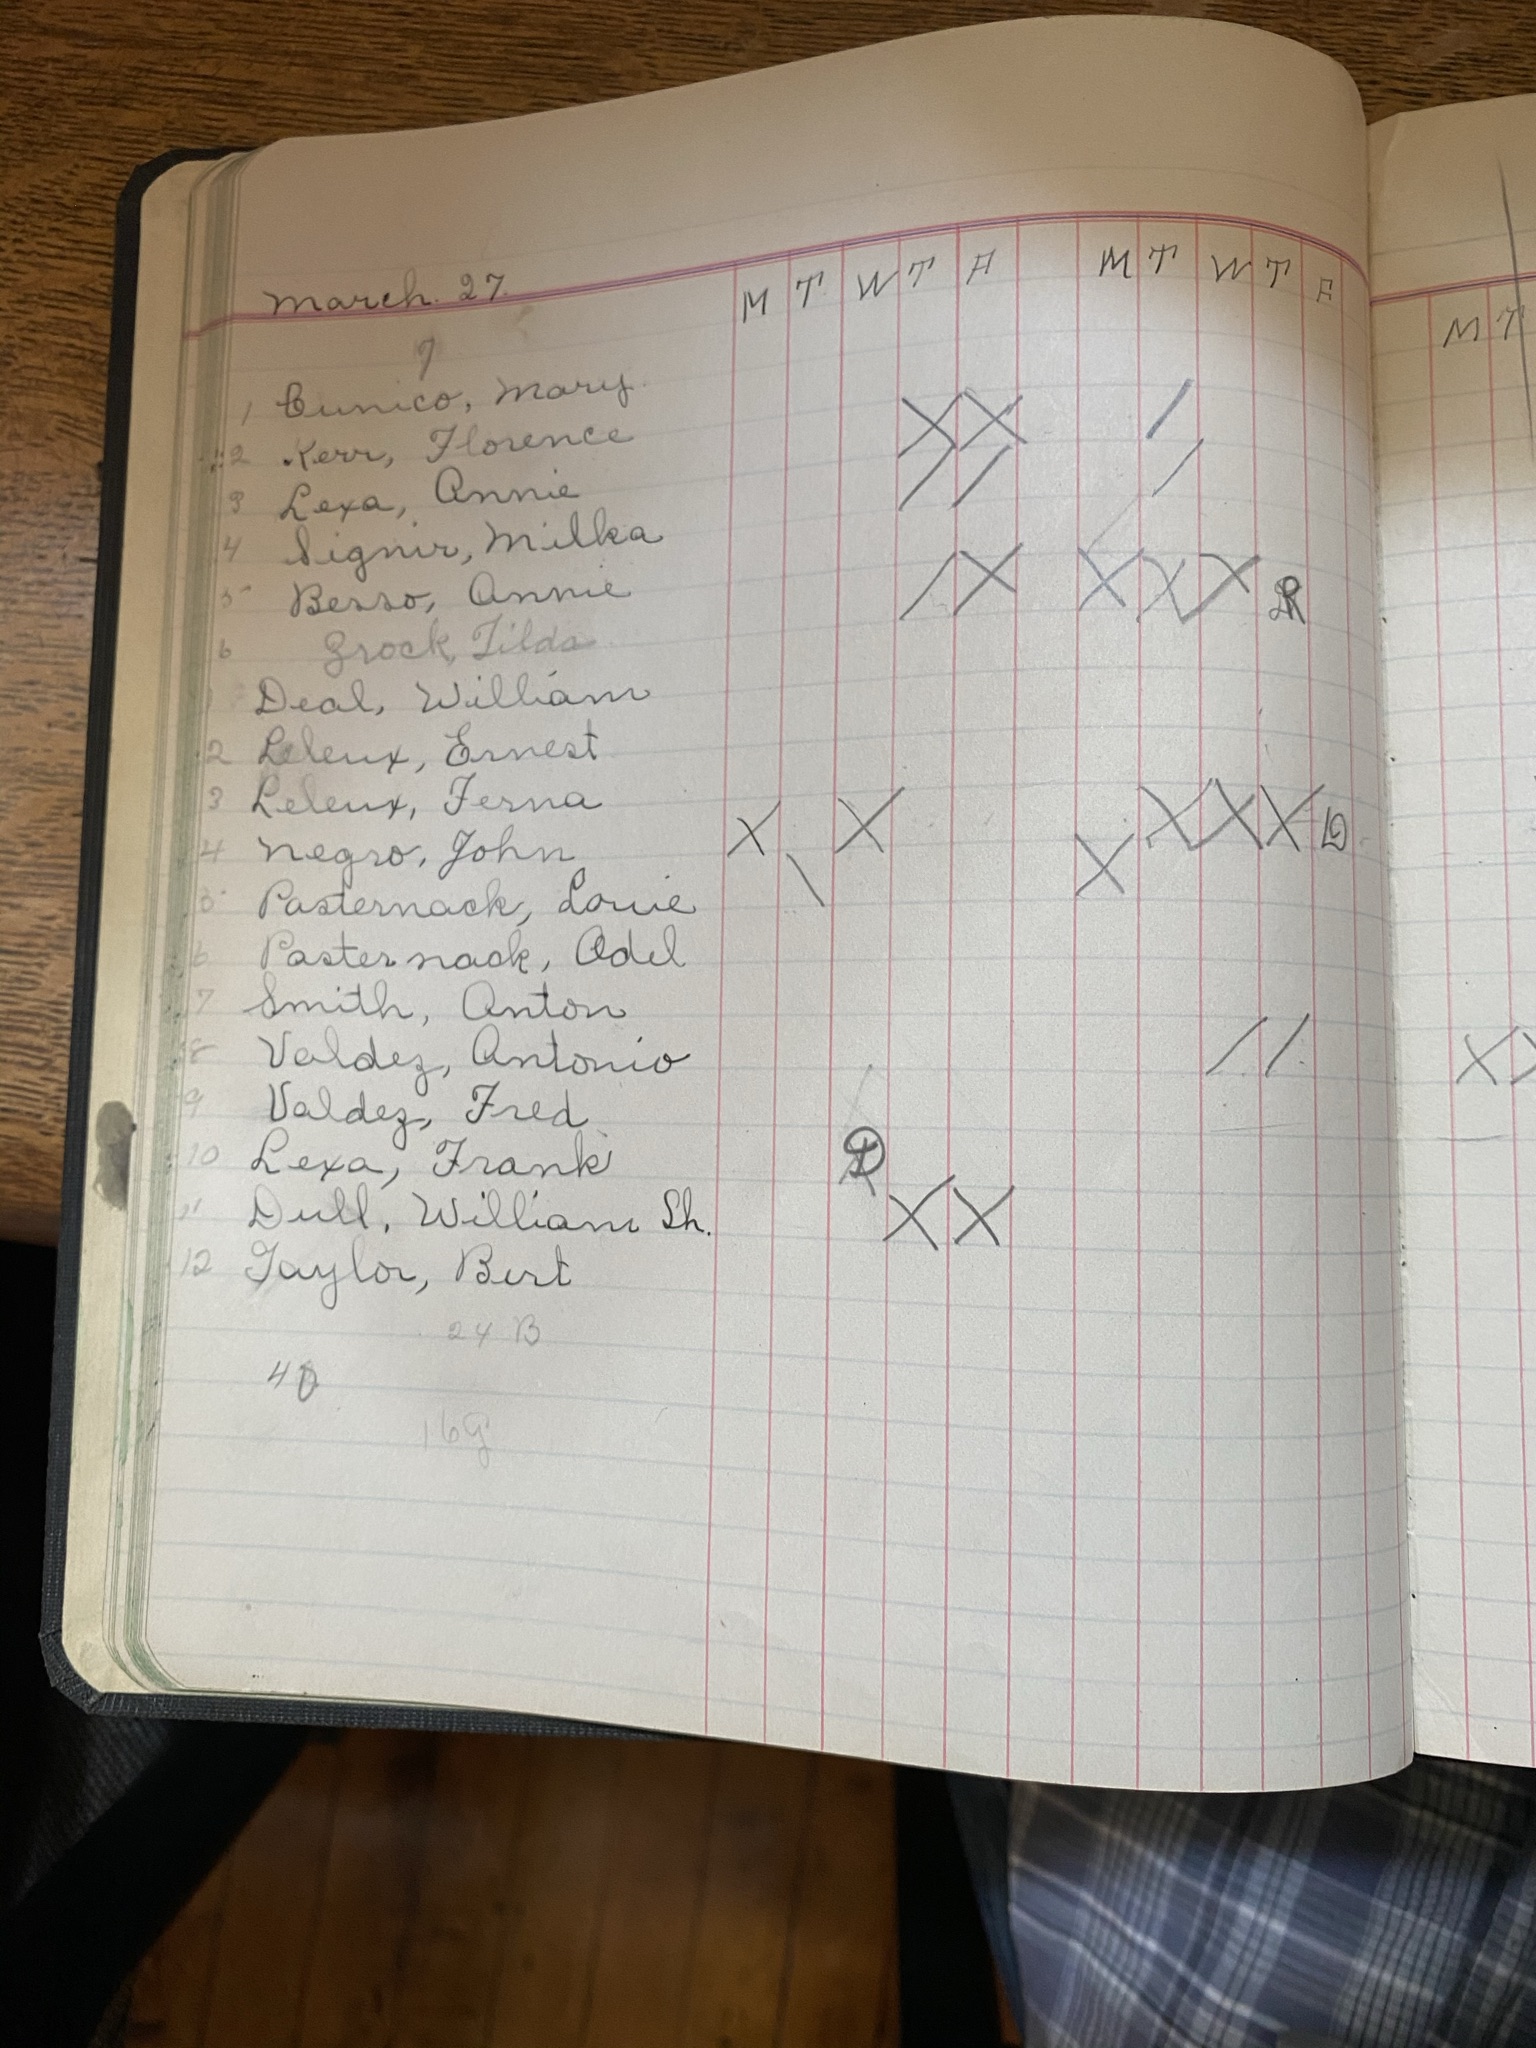 March 27. M T W T F M T W T F M T
7
1 Cunico, Mary.
2 Kerr, Florence
3 Lexa, Annie
4 Signir, Milka
5 Besso, Annie R
6 Grock, Tilda
Deal, William
2 Leleux, Ernest
3 Leleux, Ferna X X X X X D
4 Negro, John X
5 Pasternack, Louie
6 Pasternack, Odel
7 Smith, Anton
8 Valdez, Antonio
9 Valdez, Fred
10 Lexa, Frank
11 Dull, William Sh. X X
12 Taylor, Bert
24 B
40
16 G